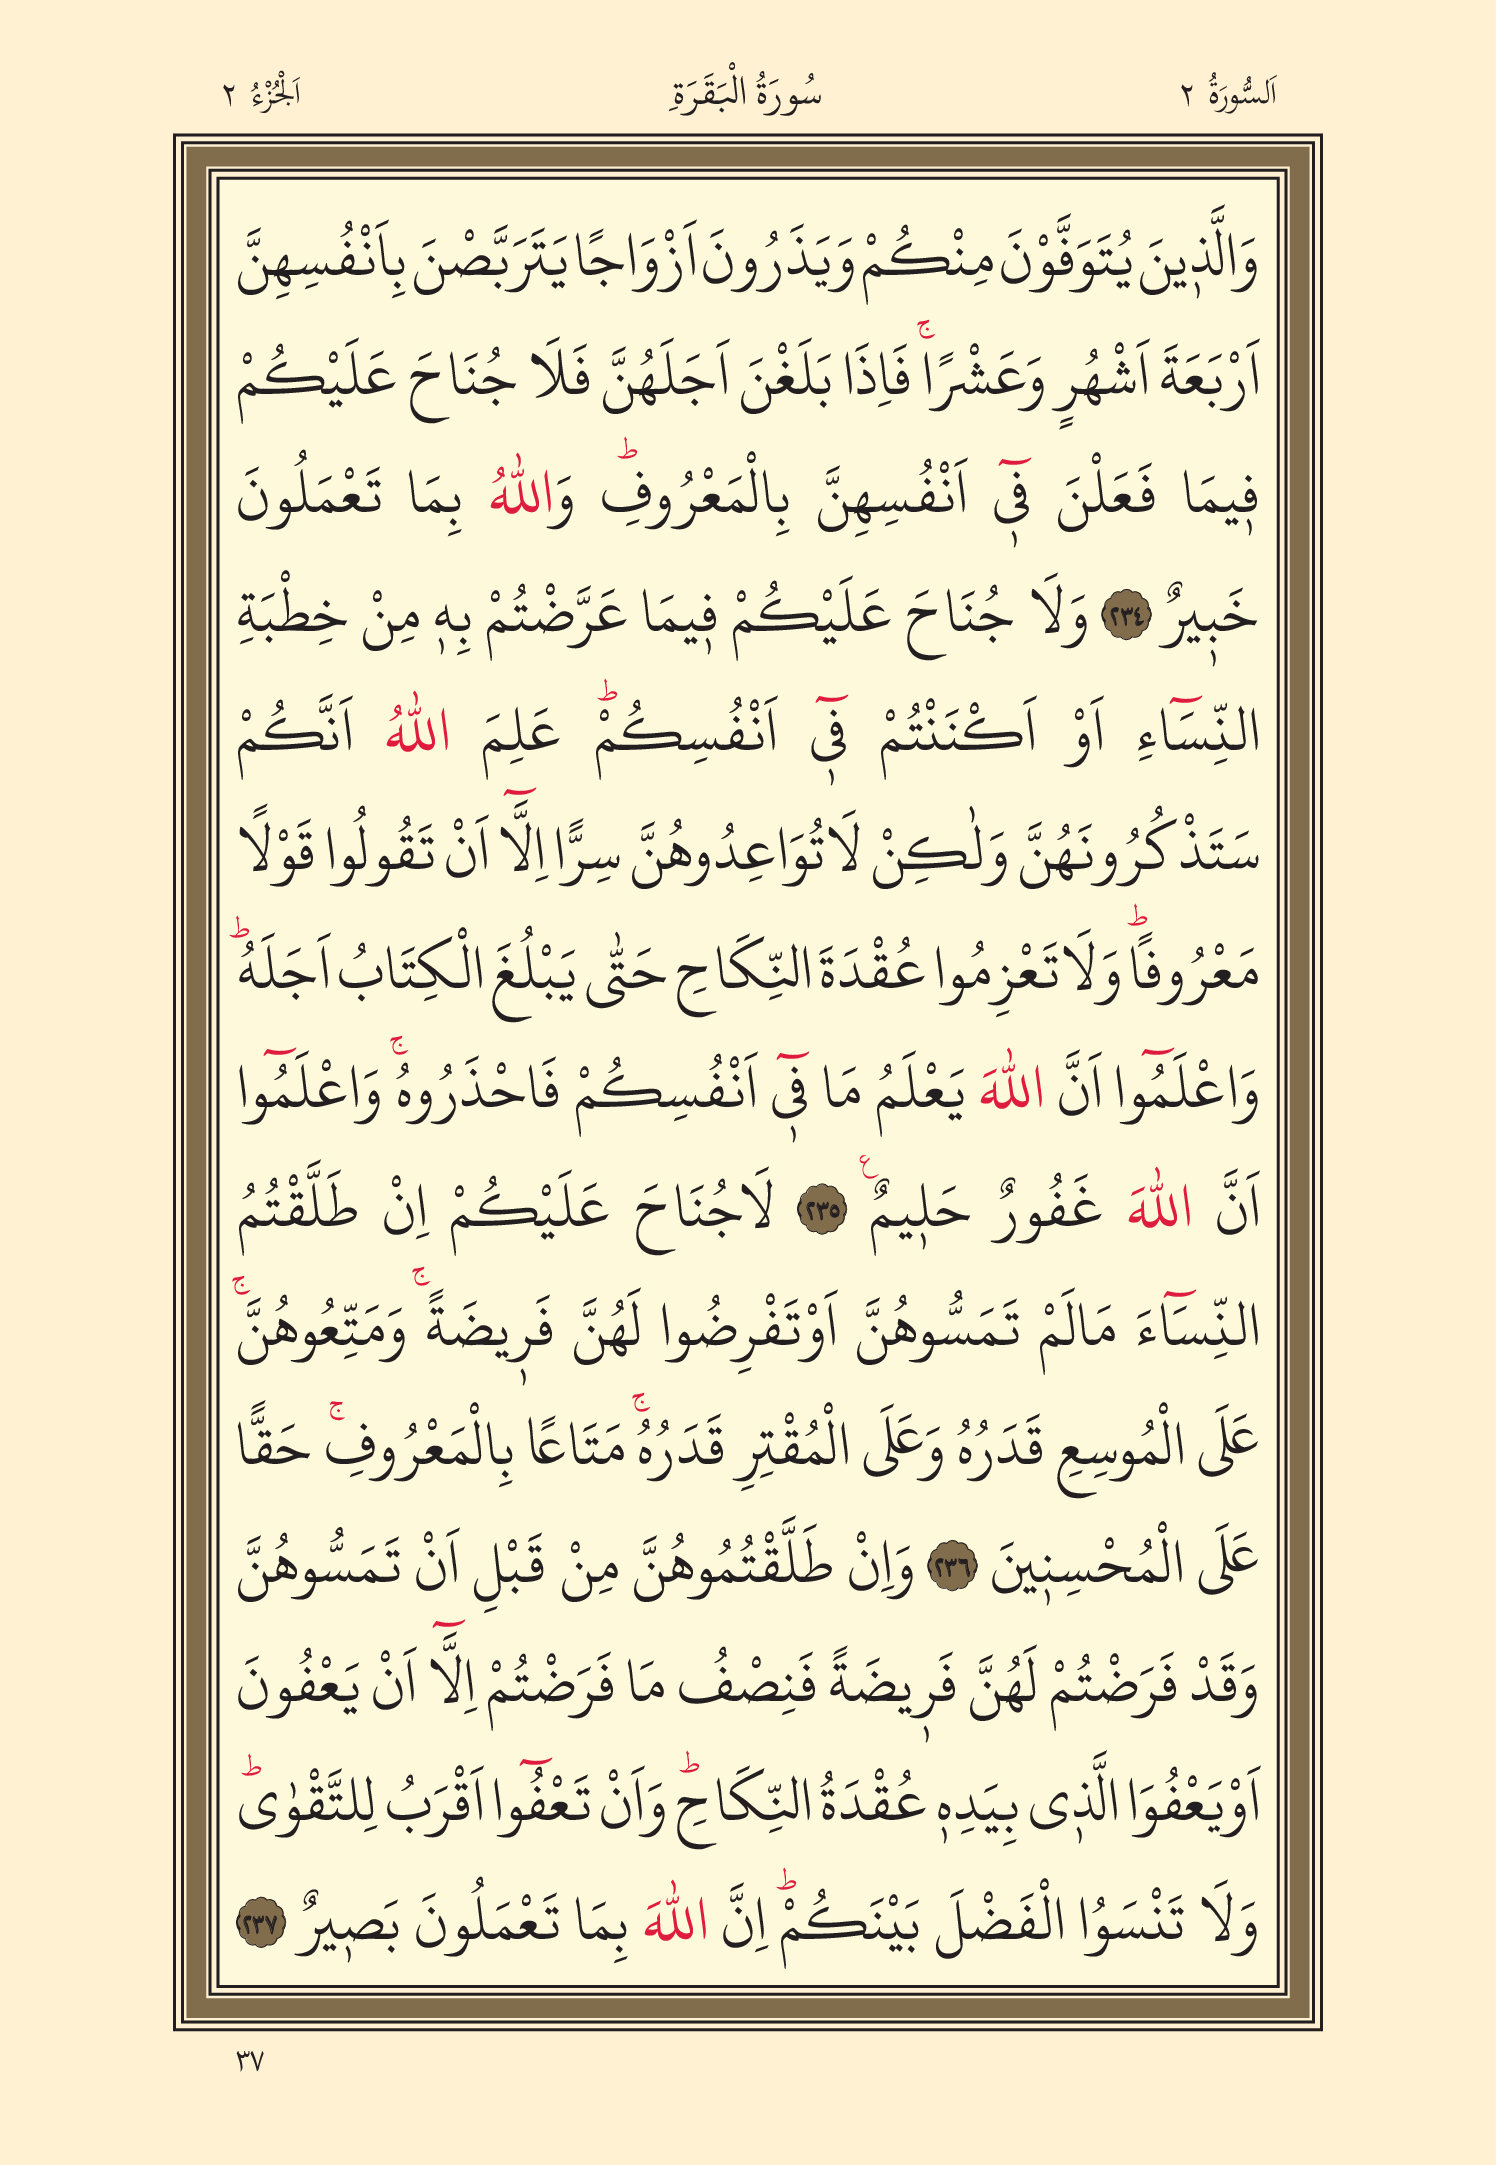 اَلسُّورَةُ ٢ سُورَةُ الْبَقَرَةِ اَلْجُزْءُ ٢
وَالَّذ۪ينَ يُتَوَفَّوْنَ مِنْكُمْ وَيَذَرُونَ اَزْوَاجًا يَتَرَبَّصْنَ بِاَنْفُسِهِنَّ
اَرْبَعَةَ اَشْهُرٍ وَعَشْرًاۚ فَاِذَا بَلَغْنَ اَجَلَهُنَّ فَلَا جُنَاحَ عَلَيْكُمْ
ف۪يمَا فَعَلْنَ ف۪ٓي اَنْفُسِهِنَّ بِالْمَعْرُوفِۜ وَاللّٰهُ بِمَا تَعْمَلُونَ
خَب۪يرٌ ٢٣٤ وَلَا جُنَاحَ عَلَيْكُمْ ف۪يمَا عَرَّضْتُمْ بِه۪ مِنْ خِطْبَةِ
النِّسَٓاءِ اَوْ اَكْنَنْتُمْ ف۪ٓي اَنْفُسِكُمْۜ عَلِمَ اللّٰهُ اَنَّكُمْ
سَتَذْكُرُونَهُنَّ وَلٰكِنْ لَا تُوَاعِدُوهُنَّ سِرًّا اِلَّٓا اَنْ تَقُولُوا قَوْلًا
مَعْرُوفًاۜ وَلَا تَعْزِمُوا عُقْدَةَ النِّكَاحِ حَتّٰى يَبْلُغَ الْكِتَابُ اَجَلَهُۜ
وَاعْلَمُٓوا اَنَّ اللّٰهَ يَعْلَمُ مَا ف۪ٓي اَنْفُسِكُمْ فَاحْذَرُوهُۚ وَاعْلَمُٓوا
اَنَّ اللّٰهَ غَفُورٌ حَل۪يمٌ۟ ٢٣٥ لَا جُنَاحَ عَلَيْكُمْ اِنْ طَلَّقْتُمُ
النِّسَٓاءَ مَا لَمْ تَمَسُّوهُنَّ اَوْ تَفْرِضُوا لَهُنَّ فَر۪يضَةًۚ وَمَتِّعُوهُنَّۚ
عَلَى الْمُوسِعِ قَدَرُهُ وَعَلَى الْمُقْتِرِ قَدَرُهُۚ مَتَاعًا بِالْمَعْرُوفِۚ حَقًّا
عَلَى الْمُحْسِن۪ينَ ٢٣٦ وَاِنْ طَلَّقْتُمُوهُنَّ مِنْ قَبْلِ اَنْ تَمَسُّوهُنَّ
وَقَدْ فَرَضْتُمْ لَهُنَّ فَر۪يضَةً فَنِصْفُ مَا فَرَضْتُمْ اِلَّٓا اَنْ يَعْفُونَ
اَوْ يَعْفُوَا الَّذ۪ي بِيَدِه۪ عُقْدَةُ النِّكَاحِۜ وَاَنْ تَعْفُٓوا اَقْرَبُ لِلتَّقْوٰىۜ
وَلَا تَنْسَوُا الْفَضْلَ بَيْنَكُمْۜ اِنَّ اللّٰهَ بِمَا تَعْمَلُونَ بَص۪يرٌ ٢٣٧
٣٧